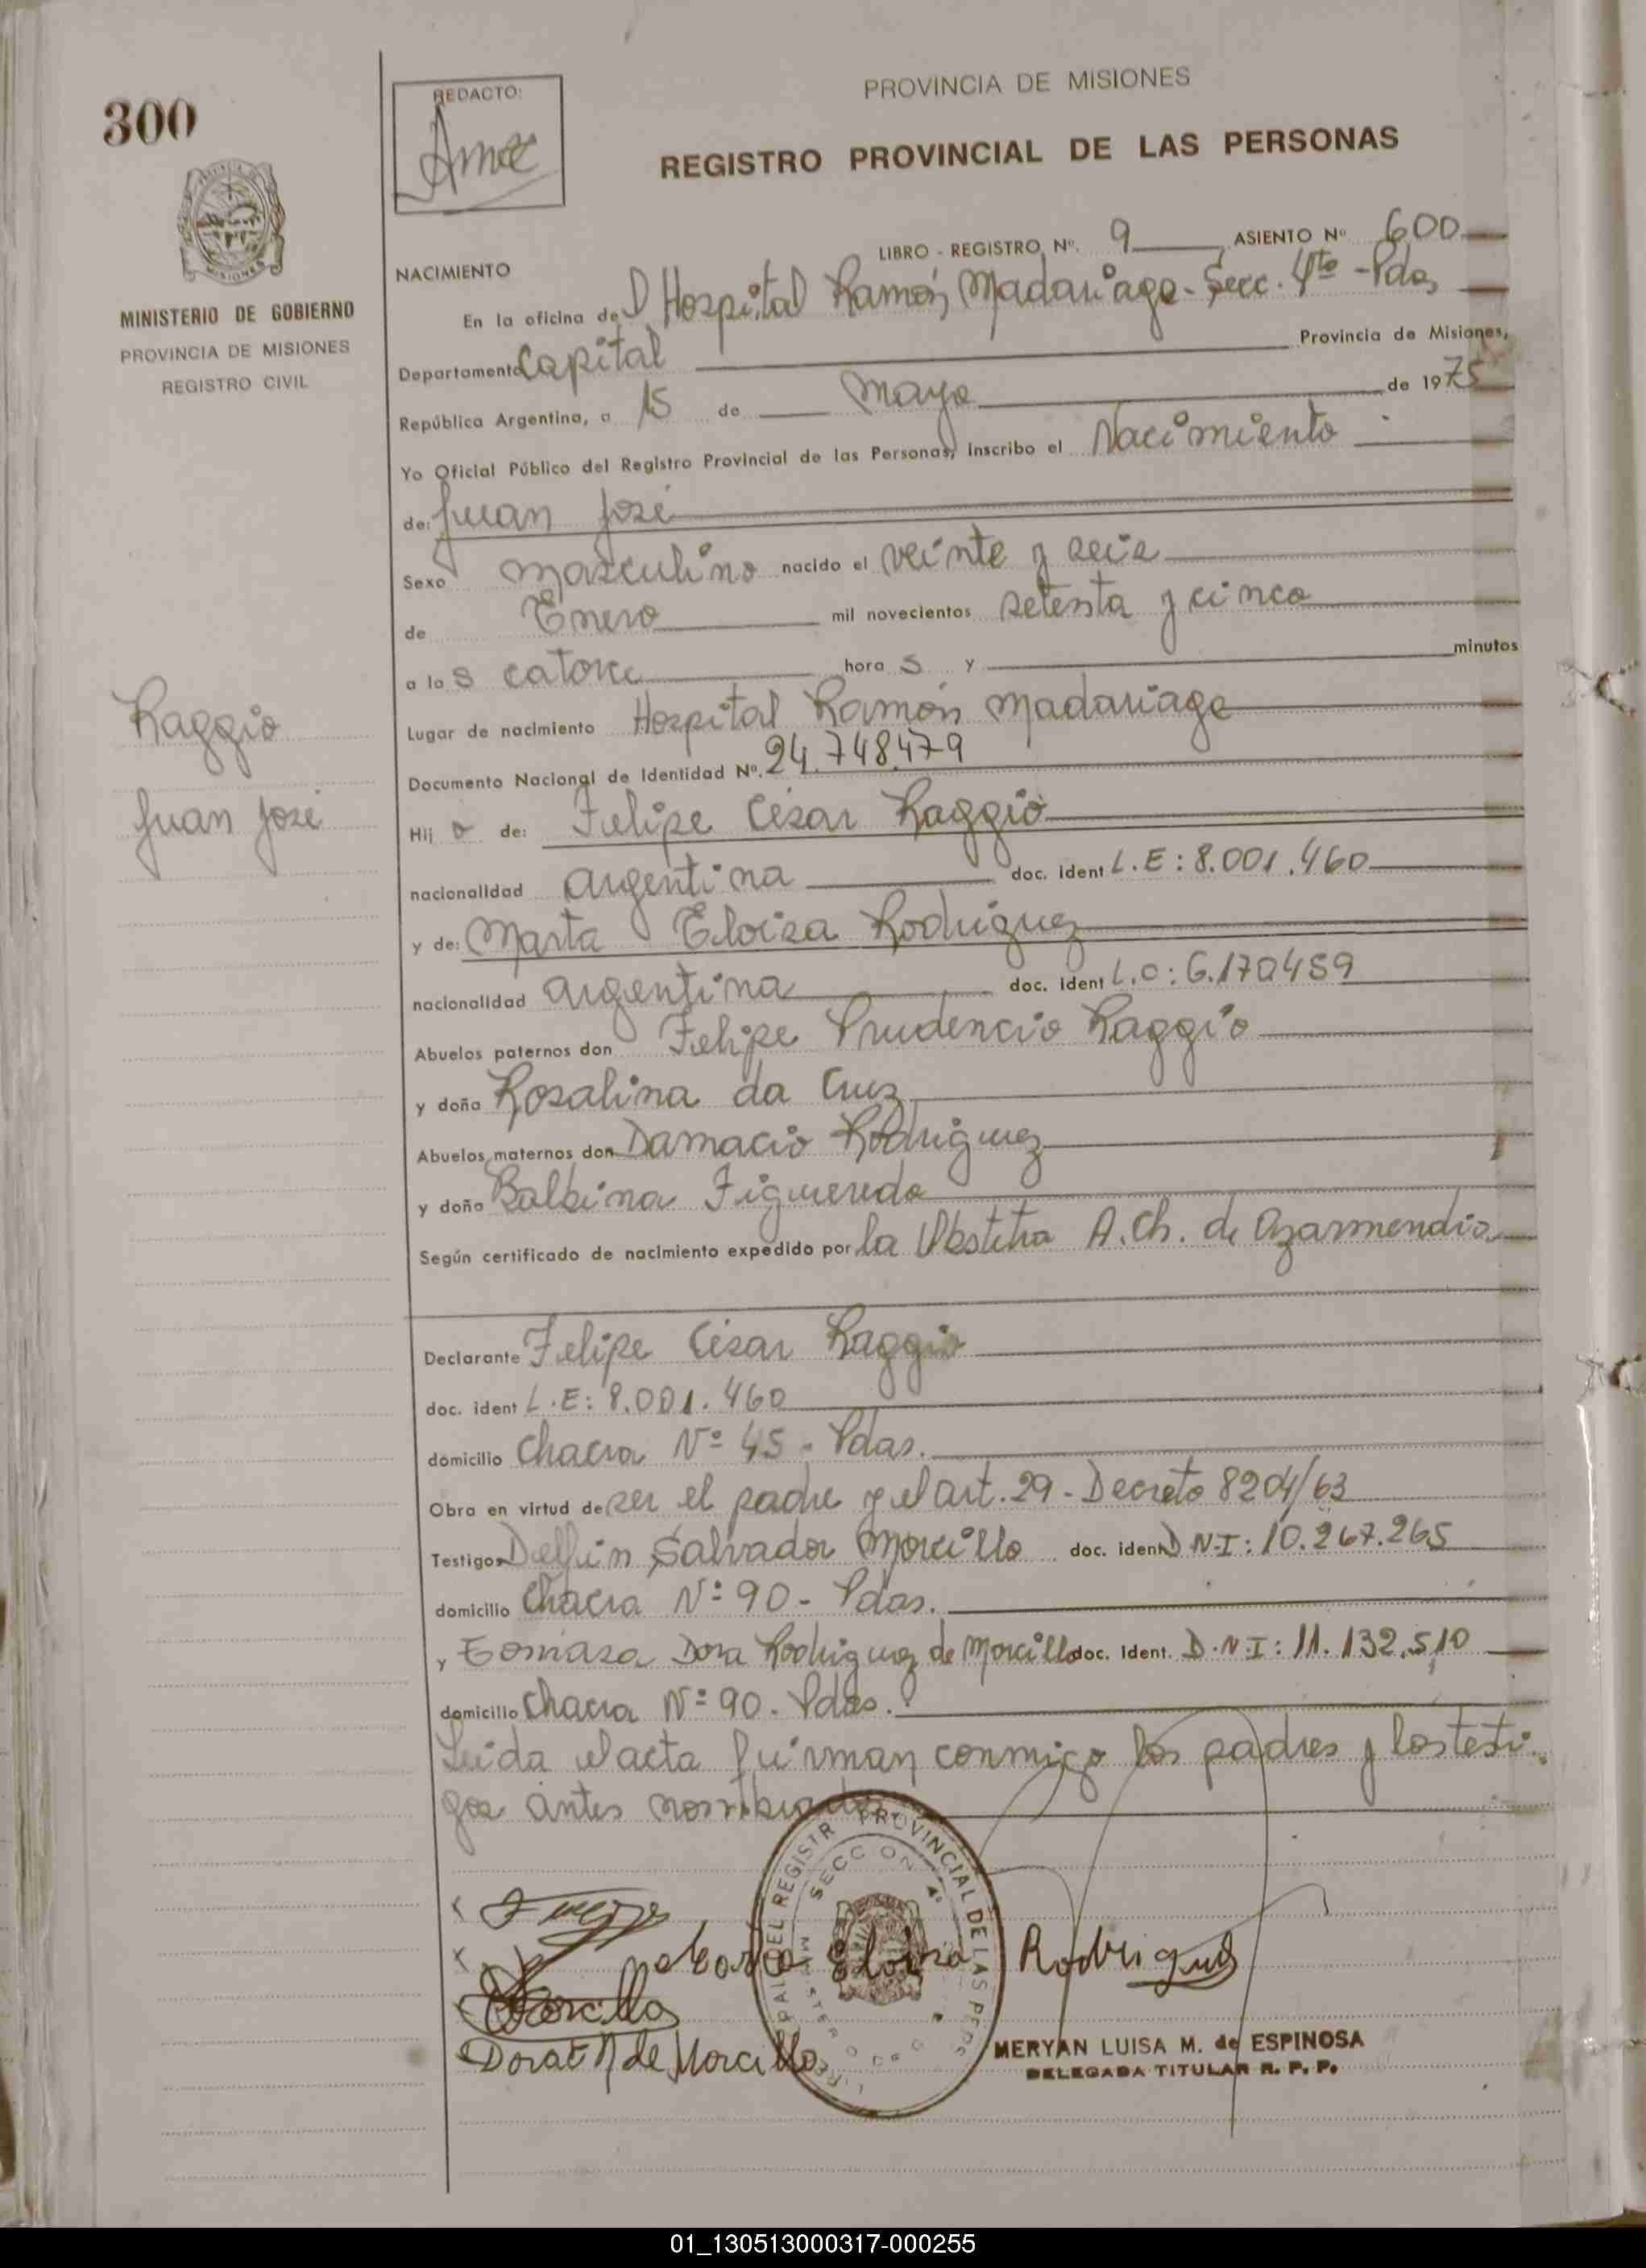 300
REDACTO:
PROVINCIA DE MISIONES
REGISTRO PROVINCIAL DE LAS PERSONAS
MINISTERIO DE GOBIERNO
PROVINCIA DE MISIONES
REGISTRO CIVIL
LIBRO - REGISTRO Nº. 9 ASIENTO Nº 600
NACIMIENTO
En la oficina del Hospital Ramón Madariaga - Secc. 4ta - Pdas
Departamento Capital Provincia de Misiones,
República Argentina, a 15 de Mayo de 1975
Yo Oficial Público del Registro Provincial de las Personas, Inscribo el Nacimiento
de: Juan José
Sexo masculino nacido el veinte y seis
de Enero mil novecientos setenta y cinco
a las catorce horas y minutos
Raggio
Lugar de nacimiento Hospital Ramón Madariaga
Documento Nacional de Identidad Nº. 24.748.479
Juan José
Hijo de: Felipe César Raggio
nacionalidad argentina doc. ident L.E: 8.001.460
y de: Marta Eloisa Rodriguez
nacionalidad argentina doc. ident L.C: 6.170459
Abuelos paternos don Felipe Prudencio Raggio
y doña Rosalina da Cruz
Abuelos maternos don Damacio Rodriguez
y doña Balbina Figueredo
Según certificado de nacimiento expedido por la Obstetra A. Ch. de Azarmendia
Declarante Felipe César Raggio
doc. ident L.E: 8.001.460
domicilio Chacra Nº 45 - Pdas.
Obra en virtud de ser el padre y el art. 29 - Decreto 8204/63
Testigos Delfin Salvador Morcillo doc. ident D.N.I: 10.267.265
domicilio Chacra Nº 90 - Pdas.
y Tomasa Dora Rodriguez de Morcillo doc. ident. D.N.I: 11.132.510
domicilio Chacra Nº 90 - Pdas.
Leida el acta firman conmigo los padres y los testi-
gos antes nombrados
Marta Eloisa Rodriguez
Morcillo
Dora R de Morcillo
PROVINCIAL DE LAS PERS
SECCION 4ª
MERYAN LUISA M. de ESPINOSA
DELEGADA TITULAR R. P. P.
01_130513000317-000255